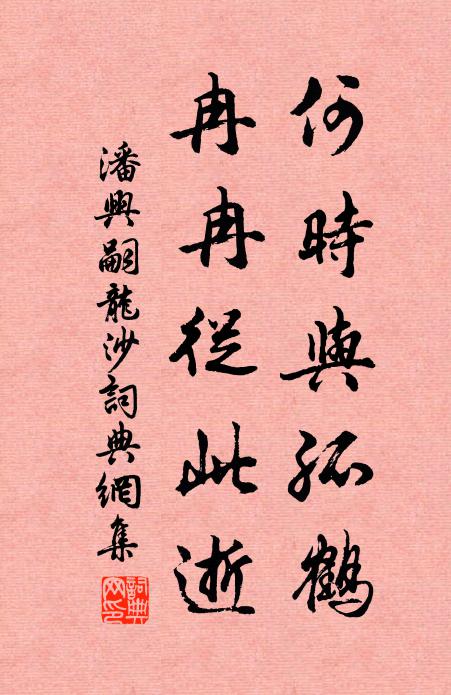 何時與孤鶴
冉冉從此逝
潘興嗣龍沙詞典網集
詞典網印